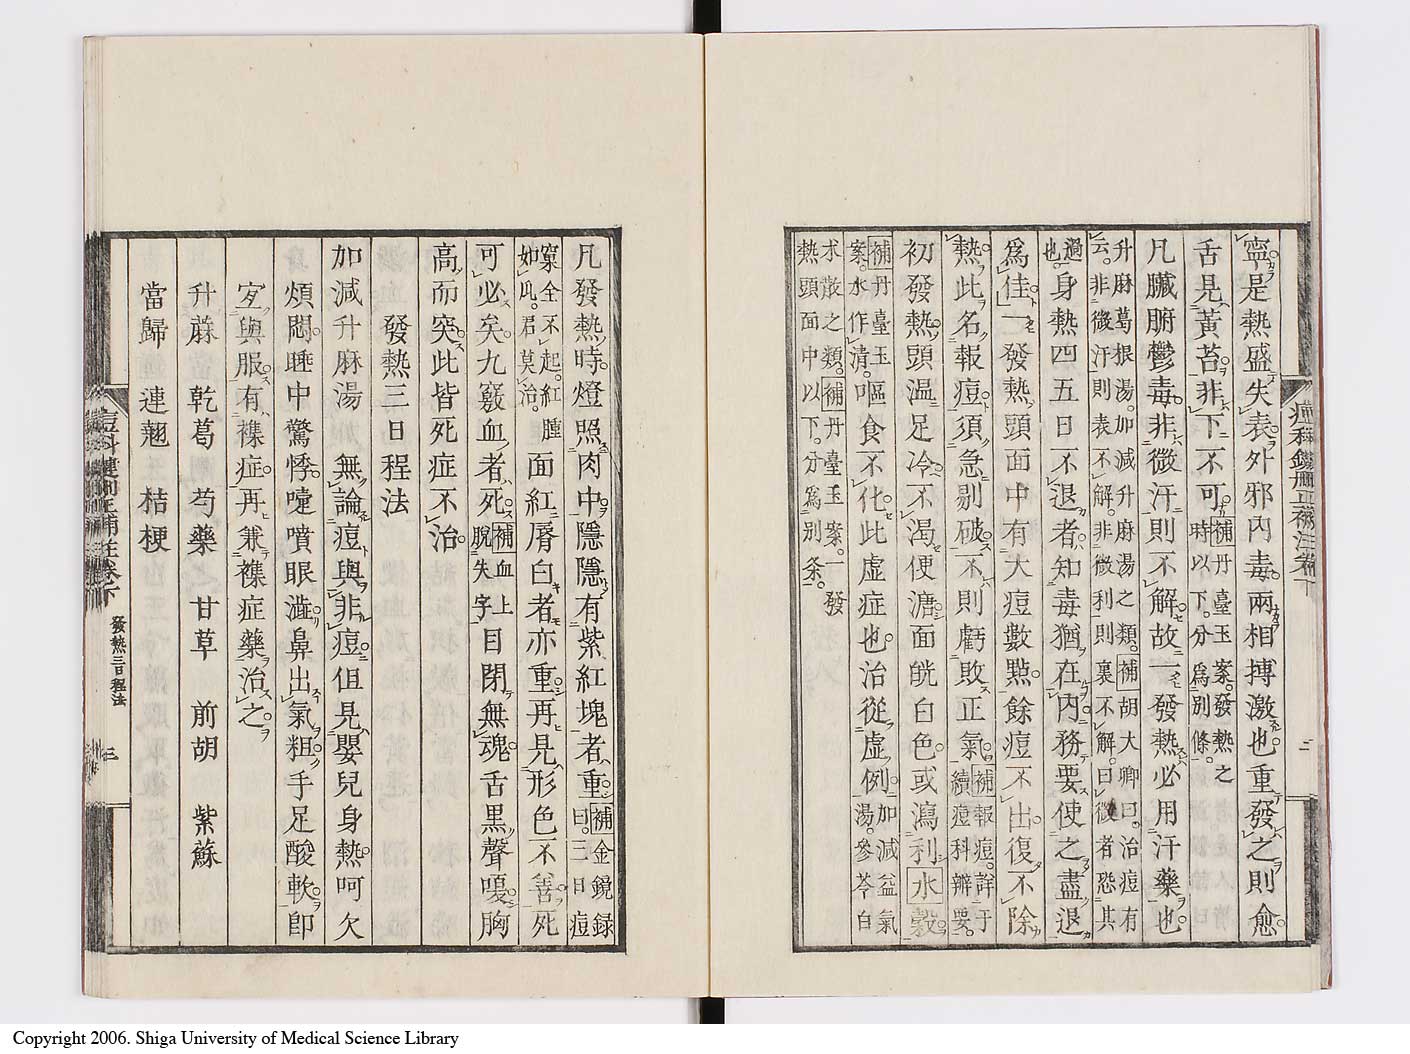 寧是熱盛失表外邪內毒兩相搏激也重發之則愈
舌見黃苔非下不可補丹臺玉案發熱之時以下分爲別條
凡臟腑鬱毒非微汗則不解故一發熱必用汗藥也
升麻葛根湯加減升麻湯之類補胡大卿曰治痘有云非微汗則表不解非微利則裏不解曰微者恐其
過也身熱四五日不退者知毒猶在內務要使之盡退
爲佳一發熱頭面中有大痘數點餘痘不出復不除
熱此名報痘須急剔破不則虧敗正氣補報痘詳于續痘科辨要
初發熱頭温足冷不渴便溏面皝白色或瀉利水穀
補丹臺玉案水作清嘔食不化此虛症也治從虛例加減益氣湯參苓白
朮散之類補丹臺玉案一發熱頭面中以下分爲別条
凡發熱時燈照肉中隱隱有紫紅塊者重補金鏡録曰三日痘
窠全不起紅腫如瓜君莫治面紅脣白者亦重再見形色不善死
可必矣九竅血者死補血上脫失字目閉無魂舌黒聲嗄胸
高而突此皆死症不治
發熱三日程法
加減升麻湯 無論痘與非痘但見嬰兒身熱呵欠
煩悶睡中驚悸嚏噴眼澁鼻出氣粗手足酸軟卽
宜與服有襍症再兼襍症藥治之
升蔴 乾葛 芍藥 甘草 前胡 紫蘇
當歸 連翹 桔梗
發熱三日程法
三
Copyright 2006. Shiga University of Medical Science Library